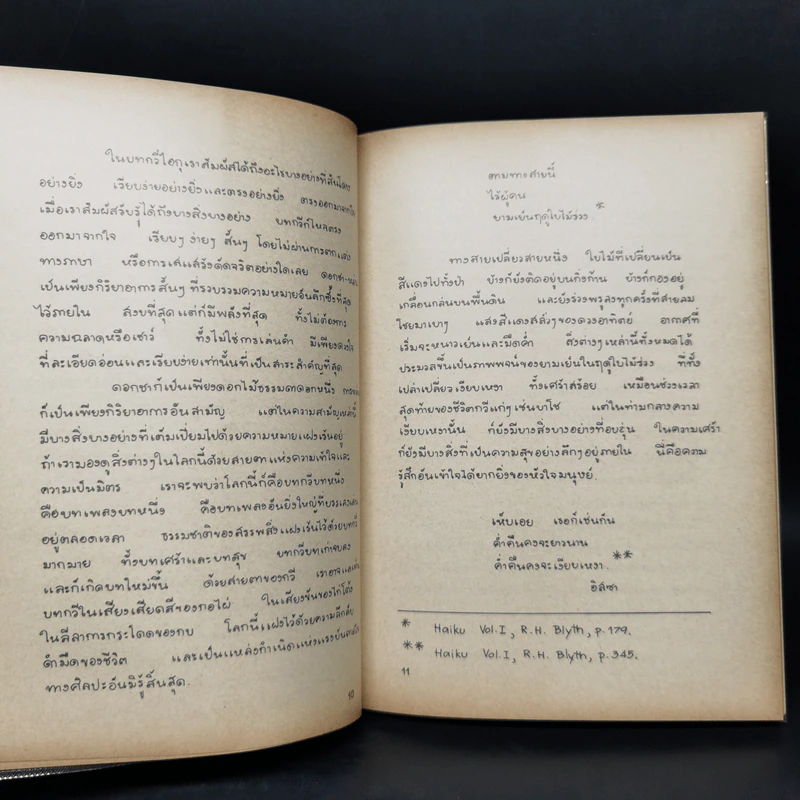 ในบทกวีไฮกุเราสัมผัสได้ถึงอะไรบางอย่างที่สั้นโดย
อย่างยิ่ง เรียบง่ายอย่างยิ่งและตรงอย่างยิ่ง ตรงออกมาจากใจ
เมื่อเราสัมผัสรับรู้ได้ถึงบางสิ่งบางอย่าง บทกวีก็ไหลตรง
ออกมาจากใจ เรียบๆ ง่ายๆ สั้นๆ โดยไม่ผ่านการตกแต่ง
ทางภาษา หรือการเสแสร้งดัดจริตอย่างใดเลย ดอกชา
เป็นเพียงกิริยาอาการสั้นๆ ที่รวบรวมความหมายอันลึกซึ้งที่สุด
ไว้ภายใน สงบที่สุด แต่ก็มีพลังที่สุด ทั้งไม่ต้องการ
ความฉลาดหรือเชาว์ ทั้งไม่ใช่การเล่นคำ มีเพียงดวงใจ
ที่ละเอียดอ่อนและเรียบง่ายเท่านั้นที่เป็นสาระสำคัญที่สุด
ดอกชาก็เป็นเพียงดอกไม้ธรรมดาดอกหนึ่ง
ก็เป็นเพียงกิริยาอาการอันสามัญ แต่ในความสามัญเหล่านี้
มีบางสิ่งบางอย่างที่เต็มเปี่ยมไปด้วยความหมายแฝงเร้นอยู่
ถ้าเรามองดูสิ่งต่างๆ ในโลกนี้ด้วยสายตาแห่งความเข้าใจและ
ความเป็นมิตร เราจะพบว่าโลกนี้ก็คือบทกวีบทหนึ่ง
คือบทเพลงบทหนึ่ง คือบทเพลงอันยิ่งใหญ่ที่บรรเลง
อยู่ตลอดเวลา ธรรมชาติของสรรพสิ่งแฝงเร้นไว้ด้วยบทกวี
มากมาย ทั้งบทเศร้าและบทสุข บทกวีบทเก่าจบลง
และก็เกิดบทใหม่ขึ้น ด้วยสายตาของกวี เราอาจ
บทกวีในเสียงเสียดสีของกอไผ่ ในเสียงขันของไก่โต้ง
ในลีลาการกระโดดของกบ โลกนี้แฝงไว้ด้วยความลึกลับ
ดำมืดของชีวิต และเป็นแหล่งกำเนิดแห่งแรงบันดาลใจ
ทางศิลปะอันมิรู้สิ้นสุด.
10
ตามทางสายนี้
ไร้ผู้คน
ยามเย็นฤดูใบไม้ร่วง *
ทางสายเปลี่ยวสายหนึ่ง ใบไม้ที่เปลี่ยนเป็น
สีแดงไปทั้งป่า บ้างก็ยังติดอยู่บนกิ่งก้าน บ้างก็กองอยู่
เกลื่อนกล่นบนพื้นดิน และยังร่วงพรูลงทุกครั้งที่สายลม
โชยมาเบาๆ แสงสีแดงสลัวๆ ของดวงอาทิตย์ อากาศที่
เริ่มจะหนาวเย็นและมืดค่ำ สิ่งต่างๆ เหล่านี้ทั้งหมดได้
ประมวลขึ้นเป็นภาพพจน์ของยามเย็นในฤดูใบไม้ร่วง ที่ทั้ง
เปล่าเปลี่ยวเงียบเหงา ทั้งเศร้าสร้อย เหมือนช่วงเวลา
สุดท้ายของชีวิตกวีแก่ๆ เช่นบาโช แต่ในท่ามกลางความ
เงียบเหงานั้น ก็ยังมีบางสิ่งบางอย่างที่อบอุ่น ในความเศร้า
ก็ยังมีบางสิ่งที่เป็นความสุขอย่างลึกๆ อยู่ภายใน นี่คือความ
รู้สึกอันเข้าใจได้ยากยิ่งของหัวใจมนุษย์.
เห็บเอย เธอก็เช่นกัน
ค่ำคืนคงจะยาวนาน
ค่ำคืนคงจะเงียบเหงา. **
อิสซา
* Haiku Vol.I, R.H. Blyth, p.179.
** Haiku Vol.I, R.H. Blyth, p.345.
11